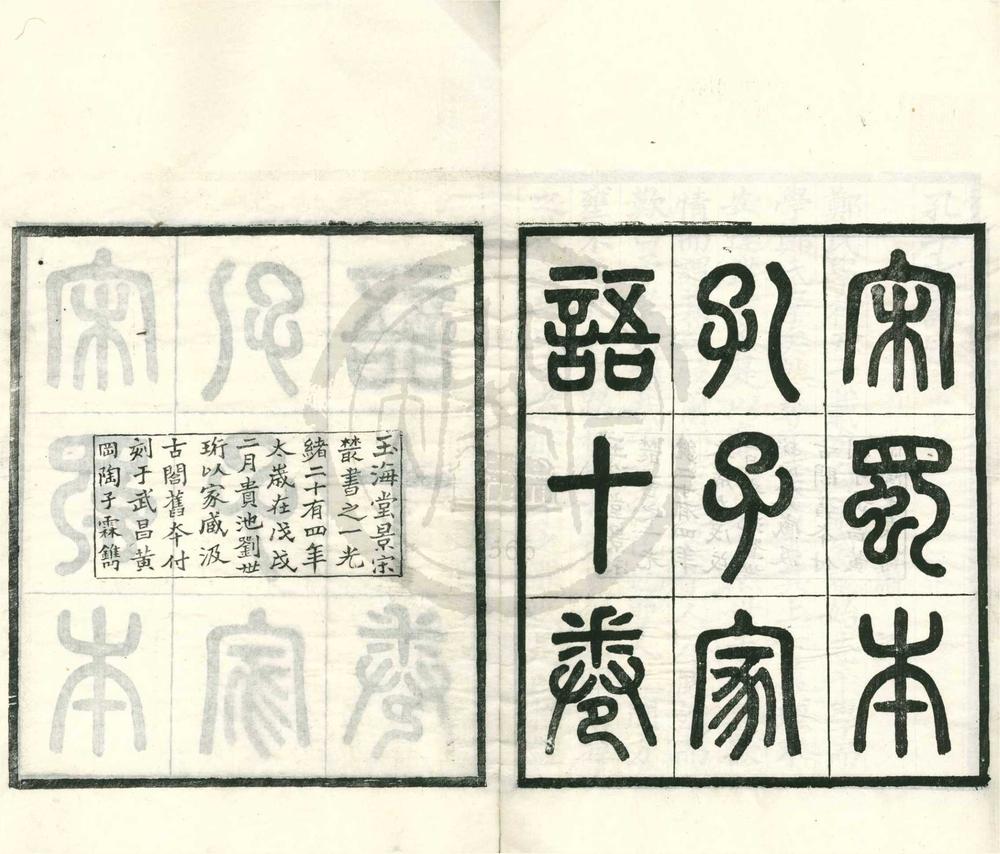 宋蜀本
孔子家
語十卷
玉海堂景宋
叢書之一光
緒二十有四年
太歲在戊戌
二月貴池劉世
珩以家藏汲
古閣舊本付
刻于武昌黄
岡陶子霖鐫